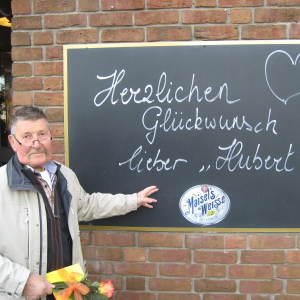 Herzlichen
Glückwunsch
lieber „Hubert
Maisel's
Weisse